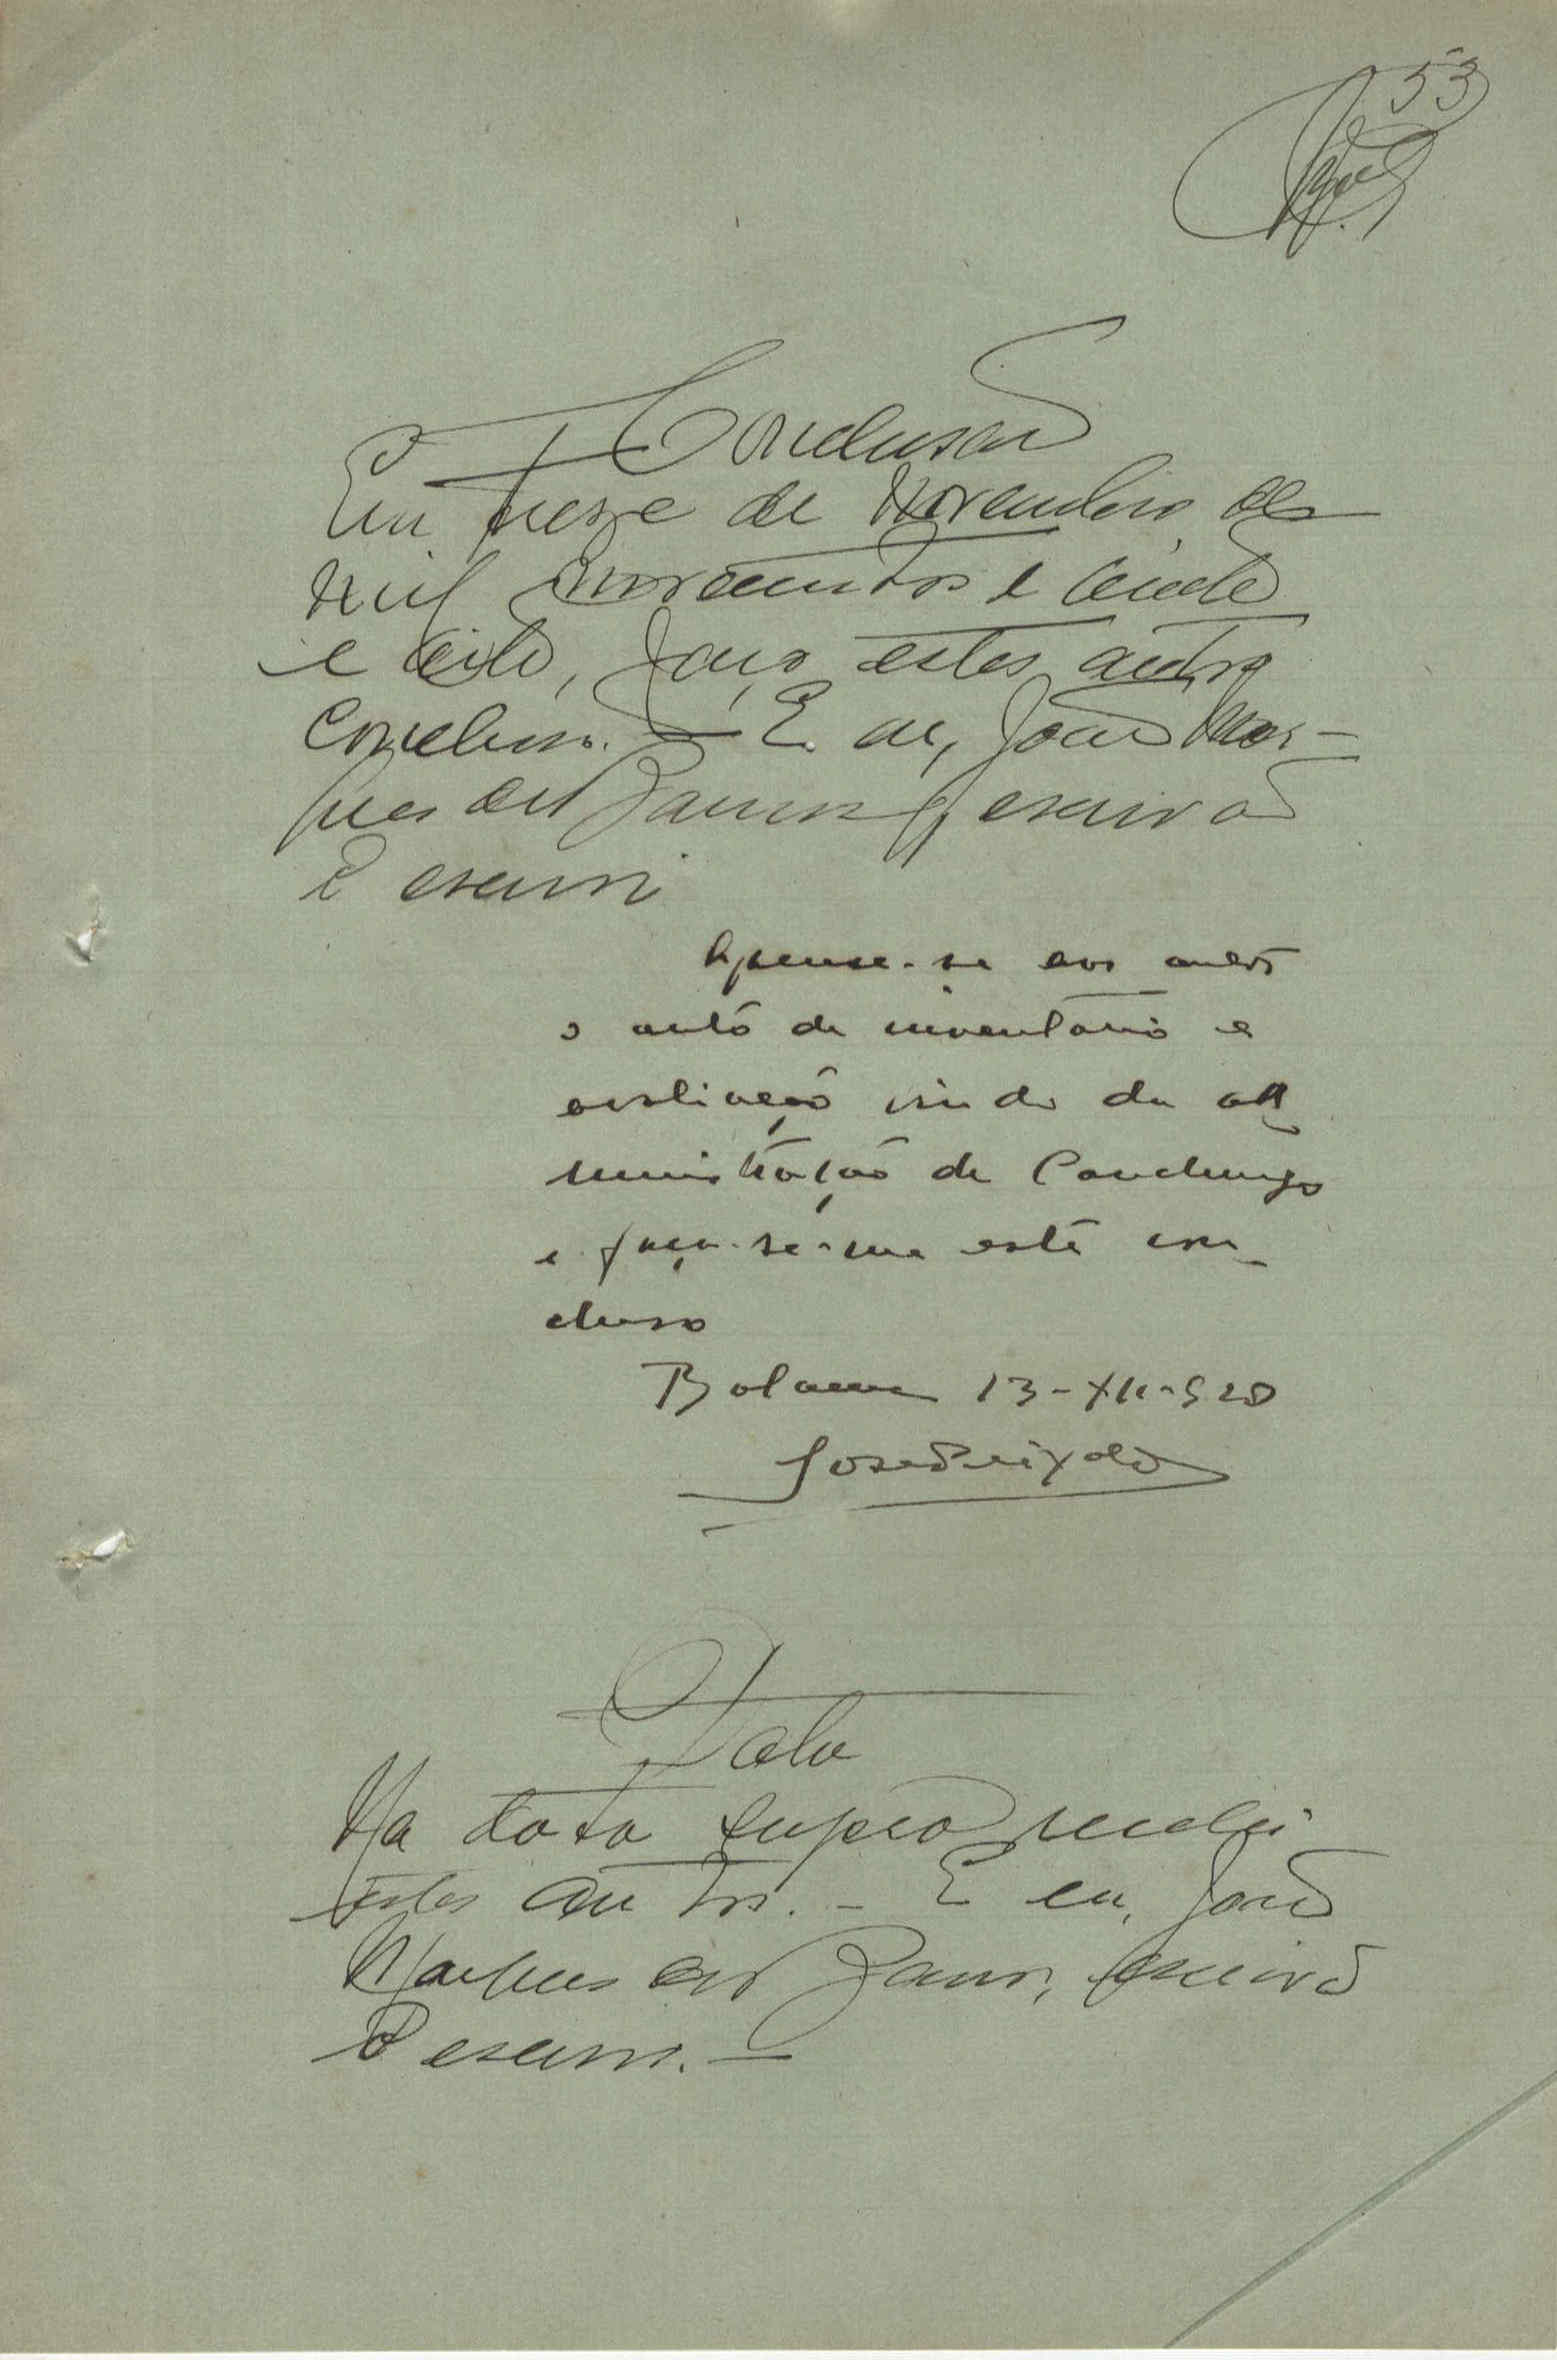 53
Conclusão
Em treze de Novembro de
mil novecentos e vinte
e oito, faço estes autos
conclusos. — E eu, João Mar-
ques de Barros, escrivão
o escrevi
Apense-se aos autos
o auto de inventario e
avaliação vindo da ad
ministração de Canchungo
e faça-se-me este con-
cluso
Bolama 13-XII-928
José Peixoto
Data
Na data supra recebi
estes autos. — E eu, João
Marques de Barros, escrivão
o escrevi. —